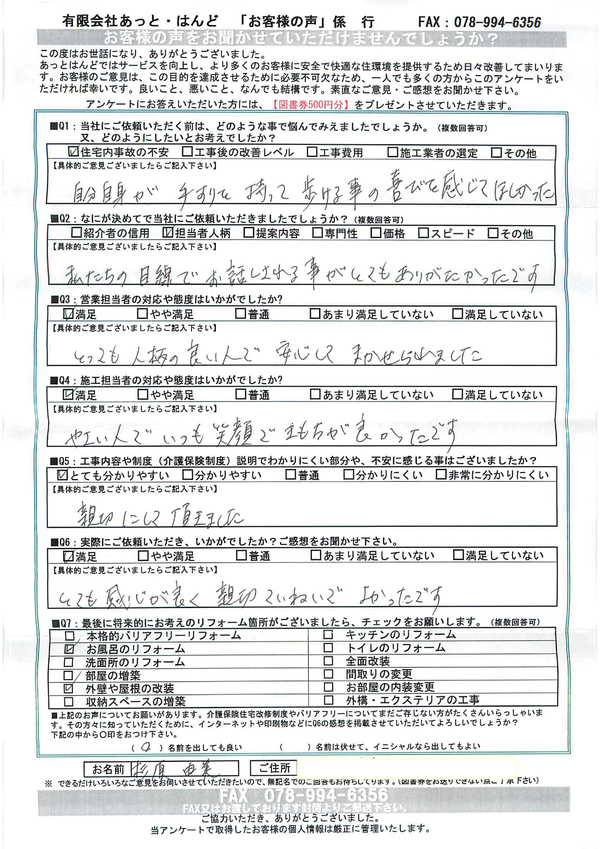 有限会社あっと・はんど 「お客様の声」係 行 FAX：078-994-6356
お客様の声をお聞かせていただけませんでしょうか？
この度はお世話になり、ありがとうございました。
あっとはんどではサービスを向上し、より多くのお客様に安全で快適な住環境を提供するため日々改善してまいります。お客様のご意見は、この目的を達成させるために必要不可欠なため、一人でも多くの方からこのアンケートをいただければ幸いです。良いこと、悪いこと、なんでも結構です。素直なご意見・ご感想をお聞かせ下さい。
アンケートにお答えいただいた方には、【図書券500円分】をプレゼントさせていただきます。
■Q1：当社にご依頼いただく前は、どのような事で悩んでみえましたでしょうか。（複数回答可）
又、どのようにしたいとお考えでしたか？
☑住宅内事故の不安 □工事後の改善レベル □工事費用 □施工業者の選定 □その他
【具体的ご意見ございましたらご記入下さい】
自分自身が 手すりを 持って 歩ける事の 喜びを 感じてほしかった
■Q2：なにが決めてで当社にご依頼いただきましたでしょうか？（複数回答可）
□紹介者の信用 ☑担当者人柄 □提案内容 □専門性 □価格 □スピード □その他
【具体的ご意見ございましたらご記入下さい】
私たちの 目線で お話しされる 事がとてもありがたかったです
■Q3：営業担当者の対応や態度はいかがでしたか？
☑満足 □やや満足 □普通 □あまり満足していない □満足していない
【具体的ご意見ございましたらご記入下さい】
とっても 人柄の良い人で 安心して まかせられました
■Q4：施工担当者の対応や態度はいかがでしたか？
☑満足 □やや満足 □普通 □あまり満足していない □満足していない
【具体的ご意見ございましたらご記入下さい】
人で いつも 笑顔で きもちが良かったです
■Q5：工事内容や制度（介護保険制度）説明でわかりにくい部分や、不安に感じる事はございましたか？
☑とても分かりやすい □分かりやすい □普通 □分かりにくい □非常に分かりにくい
【具体的ご意見ございましたらご記入下さい】
親切にして 頂きました
■Q6：実際にご依頼いただき、いかがでしたか？ご感想をお聞かせ下さい。
☑満足 □やや満足 □普通 □あまり満足していない □満足していない
【具体的ご意見ございましたらご記入下さい】
とても 感じが良く 親切 ていねいで よかったです
■Q7：最後に将来的にお考えのリフォーム箇所がございましたら、チェックをお願いします。（複数回答可）
□ 本格的バリアフリーリフォーム □ キッチンのリフォーム
☑ お風呂のリフォーム □ トイレのリフォーム
□ 洗面所のリフォーム □ 全面改装
□ 部屋の増築 □ 間取りの変更
☑ 外壁や屋根の改装 □ お部屋の内装変更
□ 収納スペースの増築 □ 外構・エクステリアの工事
■上記のお声についてお願いがあります。介護保険住宅改修制度やバリアフリーについてまだご存じない方がたくさんいらっしゃいます。その方々に知っていただくために、インターネットや印刷物などにQ6の感想を掲載させていただいてよろしいでしょうか？
下記の中から○印をおつけ下さい。
（○）名前を出しても良い （ ）名前は伏せて、イニシャルなら出してもよい
お名前 杉原 由美 ご住所
※ できるだけいろいろなご意見をお伺いさせていただきたいので、無記名でのご回答もお待ちしてります。（図書券をお送りできない点ご了承下さい）
FAX 078-994-6356
FAX又はお渡ししております封筒よりご郵送下さい。
ご協力いただき、ありがとうございました。
当アンケートで取得したお客様の個人情報は厳正に管理いたします。